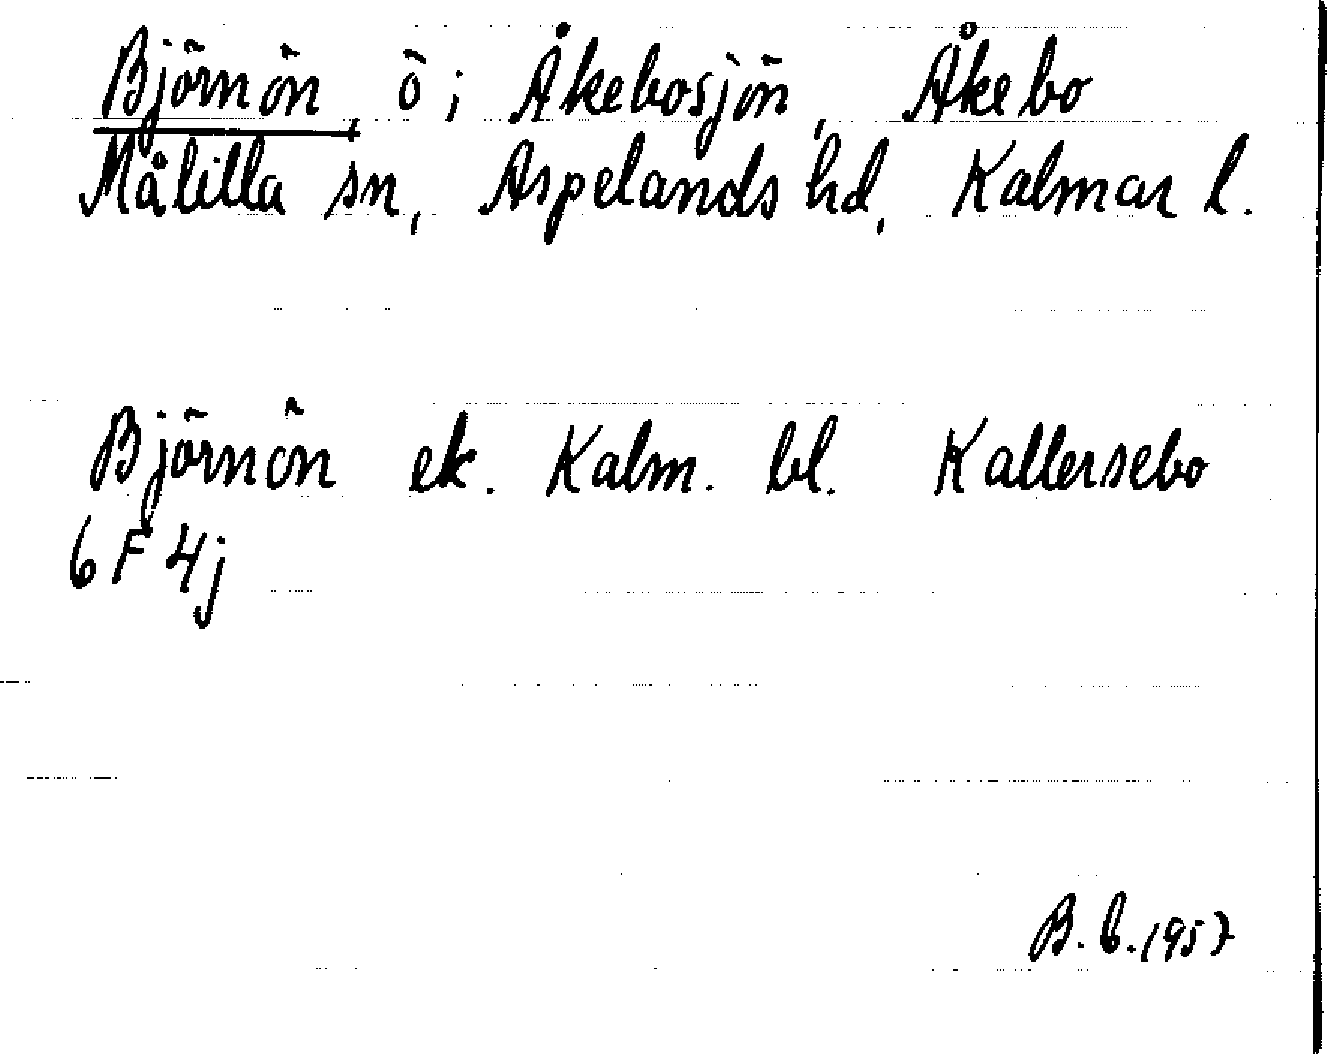 Björnön, ö i Åkebosjön, Åkebo
Målilla sn, Aspelands hd, Kalmar l.
Björnön ek. Kalm. bl. Kallersebo
6 F 4j
B. b. 1957